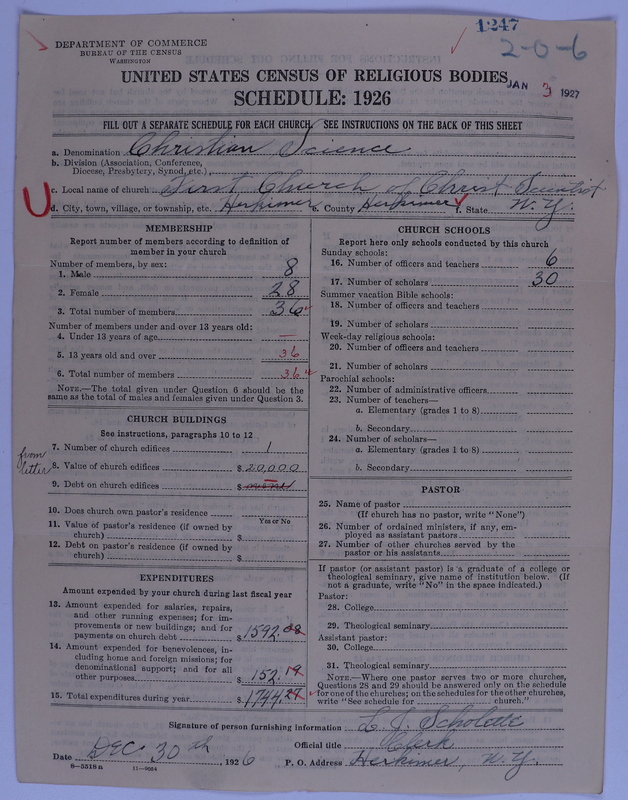 1247
2-0-6
DEPARTMENT OF COMMERCE
BUREAU OF THE CENSUS
WASHINGTON
UNITED STATES CENSUS OF RELIGIOUS BODIES
JAN 3 1927
SCHEDULE: 1926
FILL OUT A SEPARATE SCHEDULE FOR EACH CHURCH. SEE INSTRUCTIONS ON THE BACK OF THIS SHEET
a. Denomination Christian Science
b. Division (Association, Conference,
Diocese, Presbytery, Synod, etc.)
c. Local name of church First Church of Christ Scientist
d. City, town, village, or township, etc. Herkimer e. County Herkimer f. State N.Y.
MEMBERSHIP
Report number of members according to definition of
member in your church
Number of members, by sex:
1. Male 8
2. Female 28
3. Total number of members 36
Number of members under and over 13 years old:
4. Under 13 years of age —
5. 13 years old and over 36
6. Total number of members 36
NOTE.—The total given under Question 6 should be
same as the total of males and females given under Question 3.
CHURCH BUILDINGS
See instructions, paragraphs 10 to 12
from
letter
7. Number of church edifices 1
8. Value of church edifices $ 20,000
9. Debt on church edifices $ none
10. Does church own pastor's residence
Yes or No
11. Value of pastor's residence (if owned by
church) $
12. Debt on pastor's residence (if owned by
church) $
EXPENDITURES
Amount expended by your church during last fiscal year
13. Amount expended for salaries, repairs,
and other running expenses; for im-
provements or new buildings; and for
payments on church debt $ 1592.08
14. Amount expended for benevolences, in-
cluding home and foreign missions; for
denominational support; and for all
other purposes $ 152.19
15. Total expenditures during year $ 1744.27
CHURCH SCHOOLS
Report here only schools conducted by this church
Sunday schools:
16. Number of officers and teachers 6
17. Number of scholars 30
Summer vacation Bible schools:
18. Number of officers and teachers
19. Number of scholars
Week-day religious schools:
20. Number of officers and teachers
21. Number of scholars
Parochial schools:
22. Number of administrative officers
23. Number of teachers—
a. Elementary (grades 1 to 8)
b. Secondary
24. Number of scholars—
a. Elementary (grades 1 to 8)
b. Secondary
PASTOR
25. Name of pastor
(If church has no pastor, write "None")
26. Number of ordained ministers, if any, em-
ployed as assistant pastors
27. Number of other churches served by the
pastor or his assistants
If pastor (or assistant pastor) is a graduate of a college or
theological seminary, give name of institution below. (If
not a graduate, write "No" in the space indicated.)
Pastor:
28. College
29. Theological seminary
Assistant pastor:
30. College
31. Theological seminary
NOTE.—Where one pastor serves two or more churches,
Questions 28 and 29 should be answered only on the schedule
for one of the churches; on the schedules for the other churches,
write "See schedule for church."
Signature of person furnishing information L. J.
Official title Clerk
Date Dec. 30th, 1926 P. O. Address Herkimer, N.Y.
8-5518a 11-9064